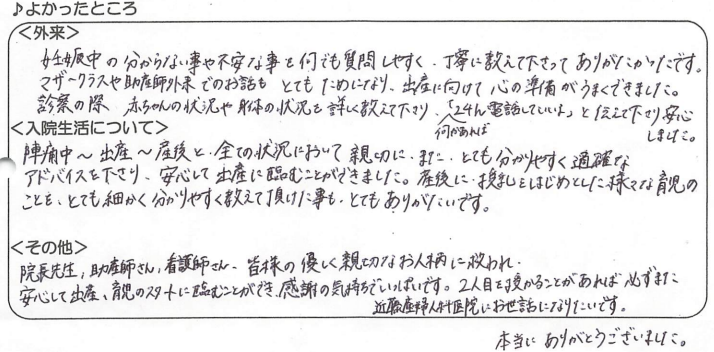 ♪よかったところ
<外来>
妊娠中の分からない事や不安な事を何でも質問しやすく、丁寧に教えて下さってありがたかったです。
マザークラスや助産師外来でのお話も とてもためになり、出産に向けて心の準備がうまくできました。
診察の際 赤ちゃんの状況や身体の状況を詳しく教えて下さり、「何かあれば24h電話していいよ」と伝えて下さり安心しました。
<入院生活について>
陣痛中～出産～産後と、全ての状況において親切に、また、とても分かりやすく適確な
アドバイスを下さり、安心して出産に臨むことができました。産後に、授乳をはじめとした様々な育児の
ことを、とても細かく分かりやすく教えて頂けた事も、とてもありがたいです。
<その他>
院長先生、助産師さん、看護師さん、皆様の優しく親切なお人柄に救われ、
安心して出産、育児のスタートに臨むことができ、感謝の気持ちでいっぱいです。2人目を授かることがあれば必ずまた
近藤産婦人科医院にお世話になりたいです。
本当にありがとうございました。